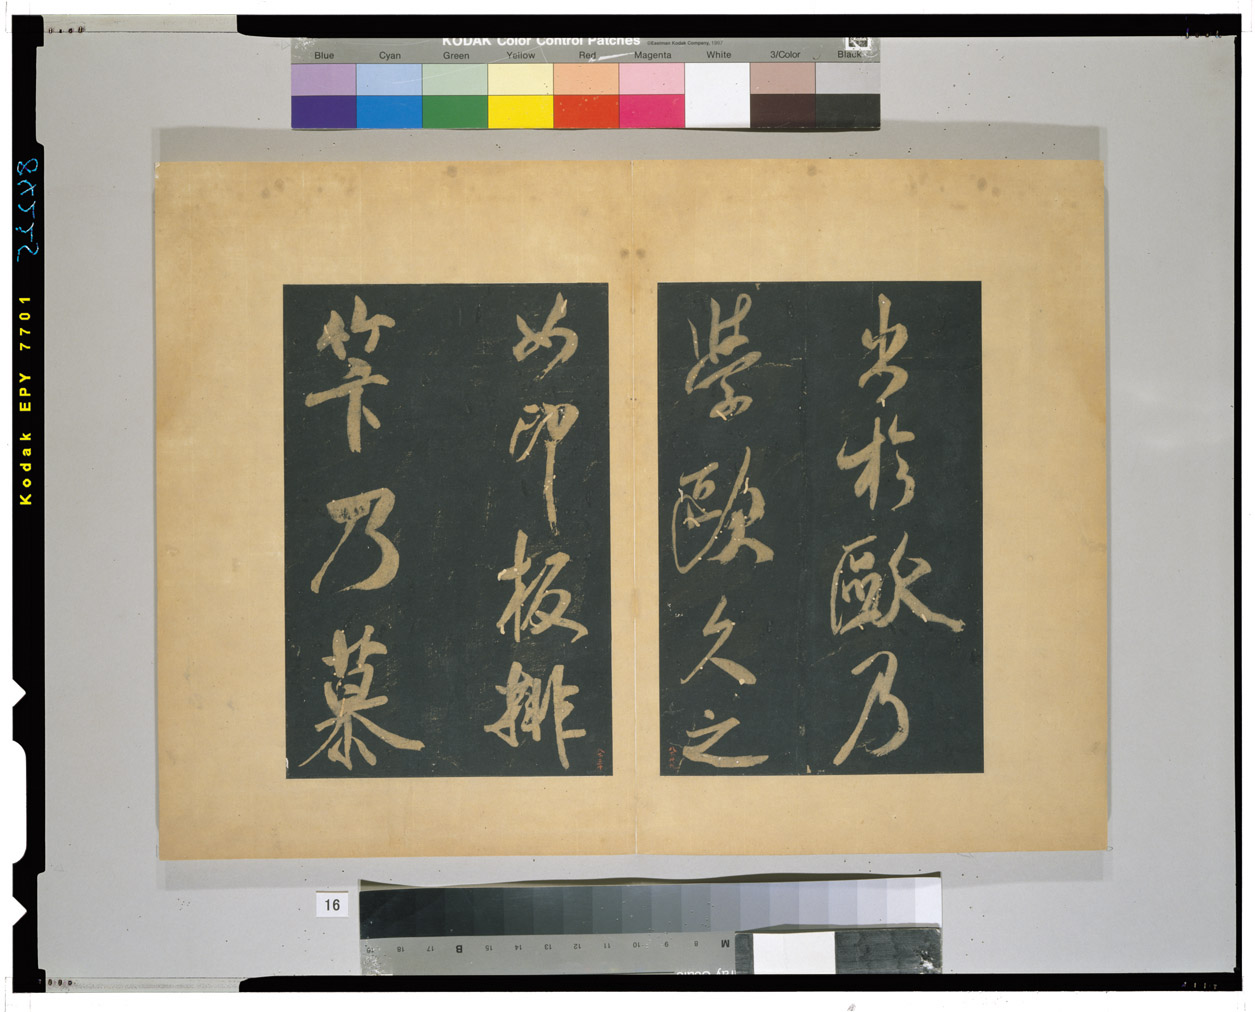 KODAK Color Control Patches
©Eastman Kodak Company, 1997
Blue Cyan Green Yellow Red Magenta White 3/Color Black
出於歐乃
學歐久之
如印板排
笇乃慕
16
Kodak EPY 7701
M 8 9 10 11 12 13 14 15 B 17 18